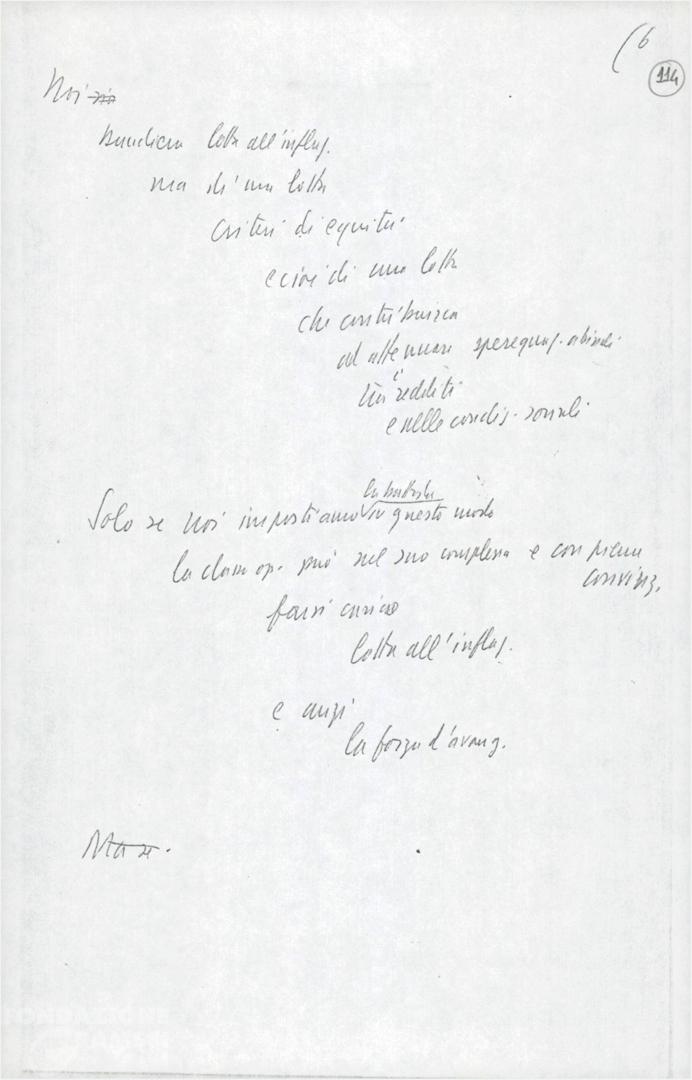 (6
114
Noi sia
bandiera lotta all'inflaz.
ma di una lotta
criteri di equità
e cioè di una lotta
che contribuisca
ad attenuare sperequaz.
tra i redditi
e nelle condiz. sociali
la battaglia
Solo se noi impostiamo in questo modo
la classe op. può nel suo complesso e con piena
convinz.
farsi carico
lotta all'inflaz.
e anzi
la forza d'avang.
Ma se.
FONDAZIONE